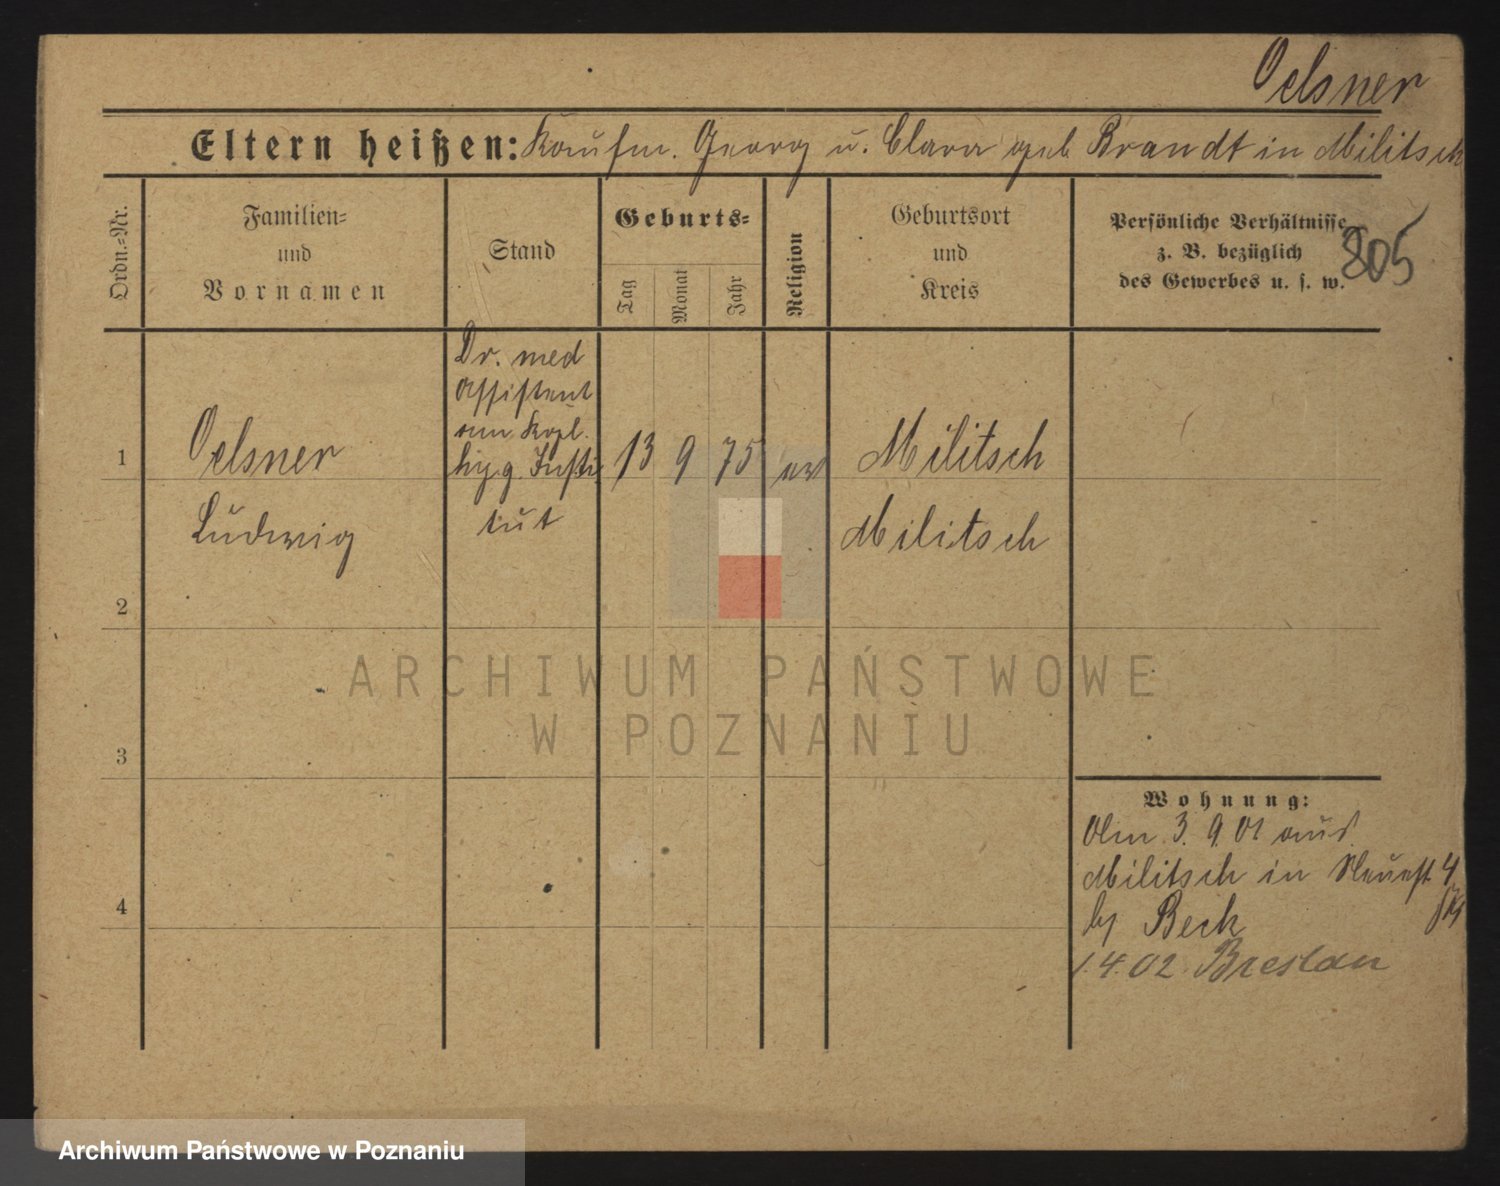 Oelsner
Eltern heißen: Kaufm. Georg u. Clara geb Brandt in Militsch
Ordn.=Nr.
Familien=
und
Vornamen
Stand
Geburts=
Tag
Monat
Jahr
Religion
Geburtsort
und
Kreis
Persönliche Verhältnisse
z. B. bezüglich
des Gewerbes u. s. w.
805
1
Oelsner
Ludwig
Dr. med
Assistent
am Kgl.
hyg. Insti
tut
13
9
75
ev
Militsch
Militsch
2
3
4
Wohnung:
Am 3. 9. 01 aus
Militsch in Neuest 4
by Beck
1.4.02 Breslau
ARCHIWUM PAŃSTWOWE
W POZNANIU
Archiwum Państwowe w Poznaniu